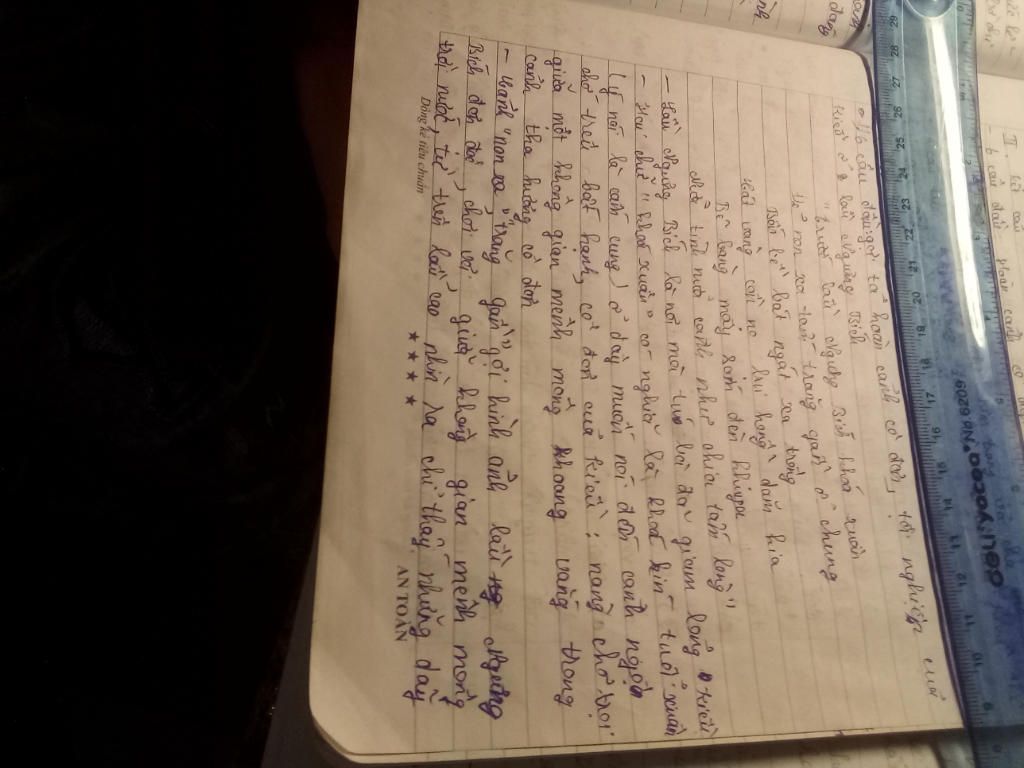 6 câu đầu: gợi tả hoàn cảnh cô đơn, tội nghiệp của
Kiều ở lầu Ngưng Bích
"Trước lầu Ngưng Bích khoá xuân
Vẻ non xa tấm trăng gần ở chung
Bốn bề bát ngát xa trông
Cát vàng cồn nọ bụi hồng dặm kia
Bẽ bàng mây sớm đèn khuya
Nửa tình nửa cảnh như chia tấm lòng"
- Lầu Ngưng Bích là nơi mà bà đã giam lỏng Kiều
- Hai chữ "khoá xuân" có nghĩa là khoá kín tuổi xuân
(ý nói là cấm cung) ở đây muốn nói đến cảnh ngộ
chớ trêu bất hạnh, cô đơn của Kiều: nàng chơ trọi
giữa một không gian mênh mông khoang vắng trong
cảnh tha hương cô đơn
- Hình "non xa" "trăng gần" gợi hình ảnh lầu Ngưng
Bích đơn độc, chơi vơi giữa không gian mênh mông
trời nước, từ trên lầu cao nhìn ra chỉ thấy những dãy
Dòng kẻ tiêu chuẩn
★ ★ ★ ★
AN TOÀN
29 28 27 26 25 24 23 22 21 20 19 18 17 16 15 14 13 12 11 10 9 8
No. 6209
II
- 6 câu đầu hoàn cảnh cô